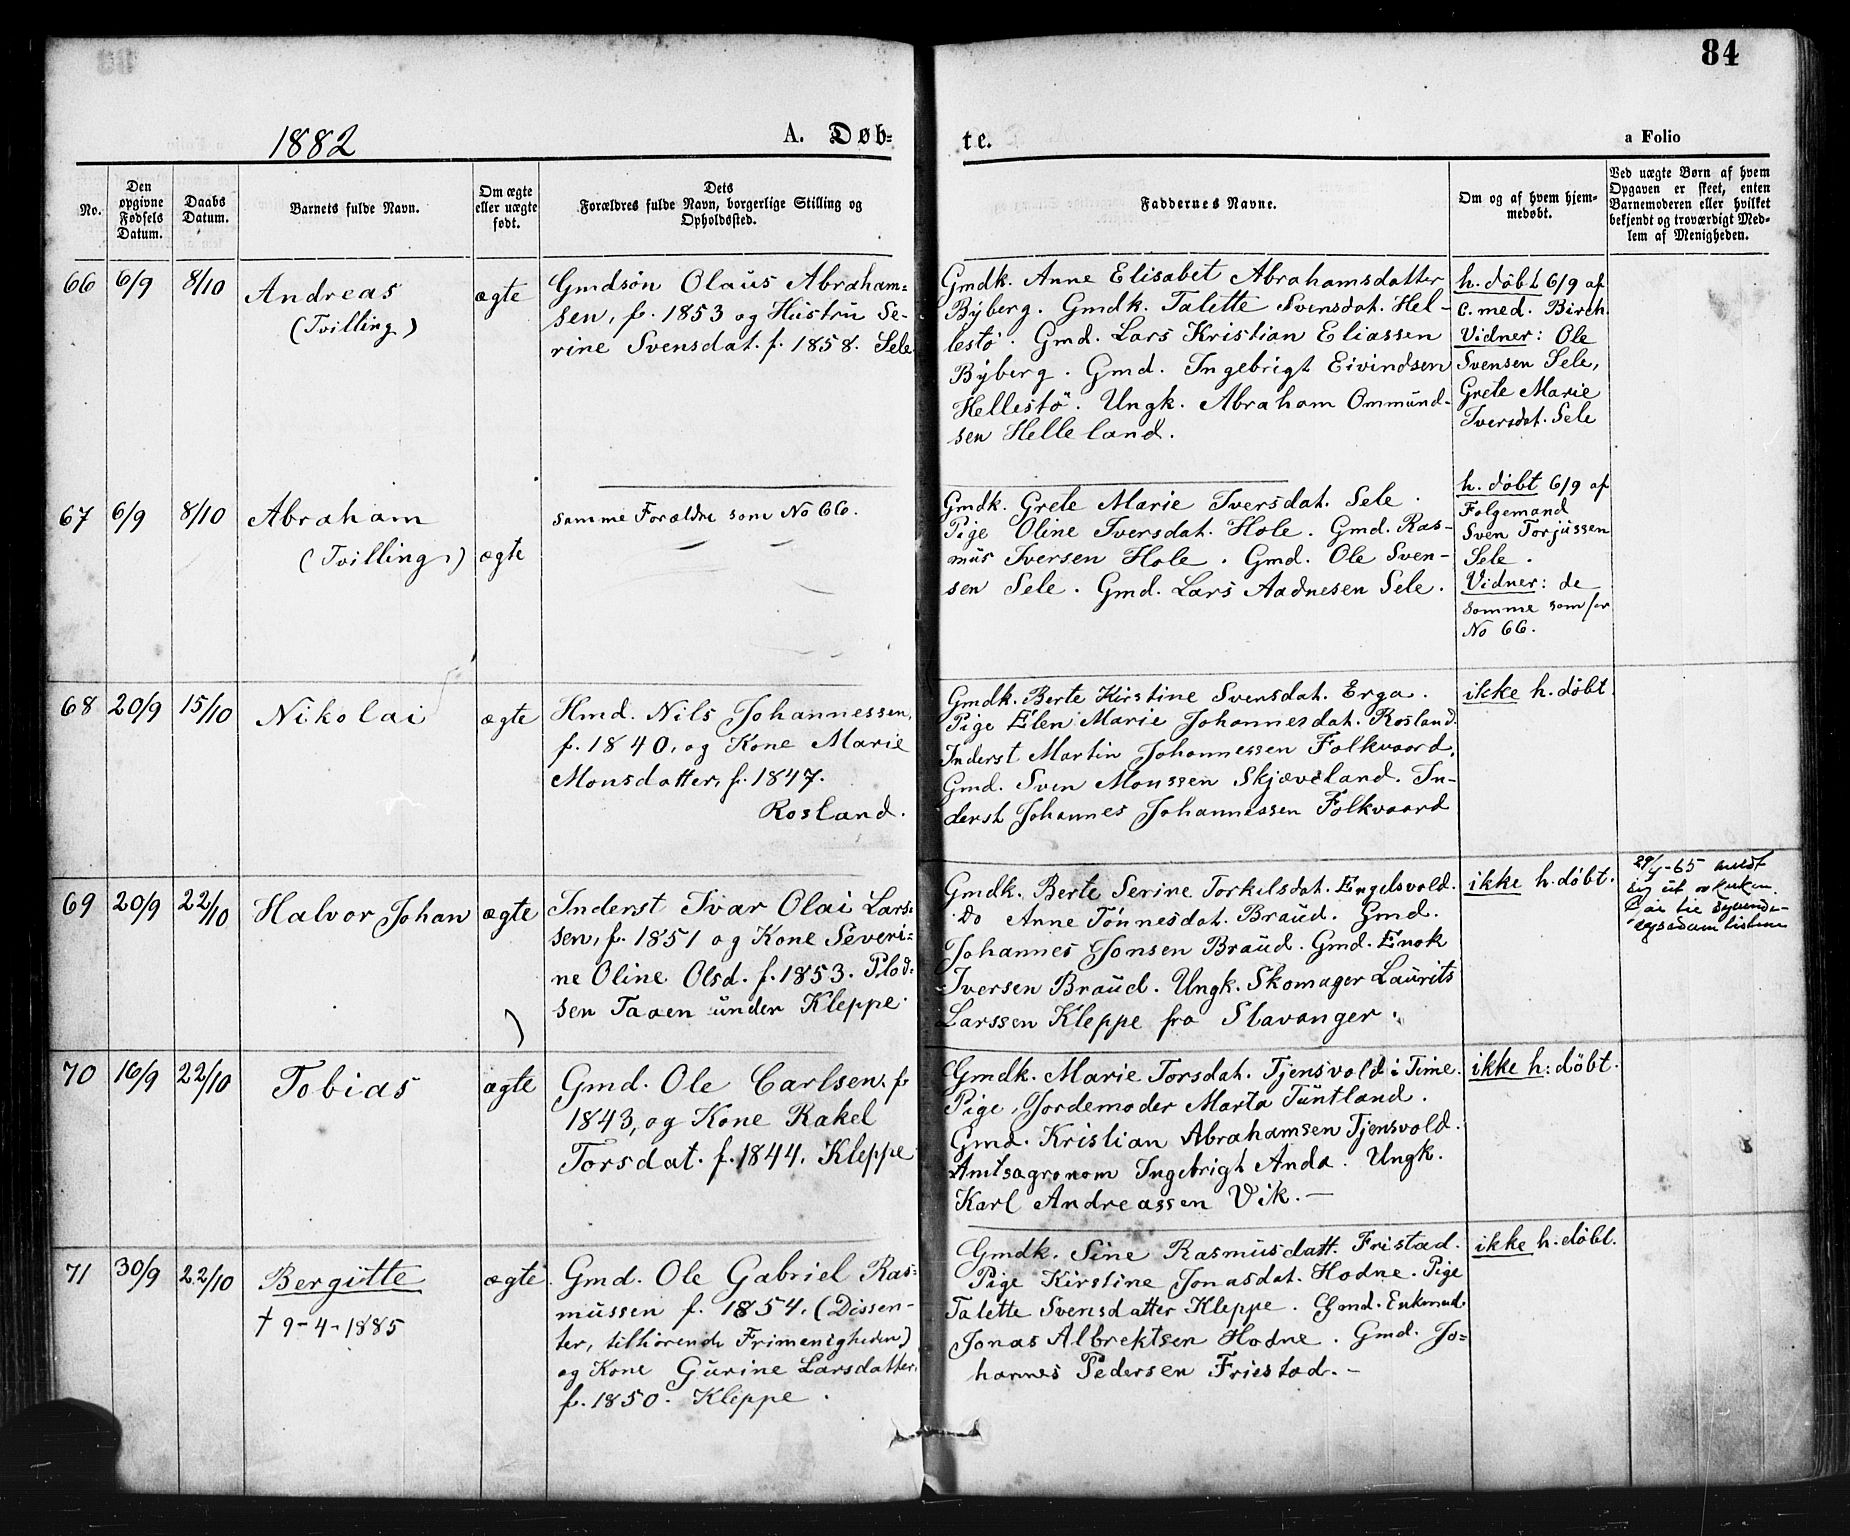 84
1882
A. Døb-
te.
a Folio
No.
Den
opgivne
Fødsels
Datum.
Daabs
Datum.
Barnets fulde Navn.
Om ægte
eller uægte
født.
Dets
Forældres fulde Navn, borgerlige Stilling og
Opholdssted.
Faddernes Navne.
Om og af hvem hjem-
medøbt.
Ved uægte Børn af hvem
Opgaven er skeet, enten
Barnemoderen eller hvilket
bekjendt og troværdigt Med-
lem af Menigheden.
66 6/9 8/10
Andreas
(Tvilling)
ægte
Gmdsøn Olaus Abraham-
sen, f. 1853 og Hustru Se-
rine Svensdat. f. 1858. Sele
Gmdk. Anne Elisabet Abrahamsdatter
Byberg. Gmdk. Talette Svensdat. Hel-
lestø. Gmd. Lars Kristian Eliassen
Byberg. Gmd. Ingebrigt Eivindsen
Hellestø. Ungk. Abraham Ommund-
sen Helleland.
h. døbt 6/9 af
c. med. Birch.
Vidner: Ole
Svensen Sele,
Grete Marie
Iversdat. Sele
67 6/9 8/10
Abraham
(Tvilling.)
ægte
Samme Forældre som No 66.
Gmdk. Grete Marie Iversdat. Sele.
Pige Oline Iversdat. Hole. Gmd. Ras-
mus Iversen Hole. Gmd. Ole Sven-
sen Sele. Gmd. Lars Aadnesen Sele.
h. døbt 6/9 af
Følgemand
Sven Torjussen
Sele.
Vidner: de
samme som for
No 66.
68 20/9 15/10
Nikolai
ægte
Hmd. Nils Johannessen,
f. 1840, og Kone Marie
Monsdatter, f. 1847.
Rosland.
Gmdk. Berte Kirstine Svensdat. Erga.
Pige Elen Marie Johannesdat. Rosland.
Inderst Martin Johannessen Folkvoord.
Gmd. Sven Monssen Skjæveland. In-
derst Johannes Johannessen Folkvoord
ikke h. døbt.
69 20/9 22/10
Halvor Johan
ægte
Inderst Ivar Olai Lars-
sen, f. 1851 og Kone Severi-
ne Oline Olsd. f. 1853. Plod-
sen Taaen under Kleppe.
Gmdk. Berte Serine Torkelsdat. Engelsvold.
Do Anne Tønnesdat. Braud. Gmd.
Johannes Jonsen Braud. Gmd. Enok
Iversen Braud. Ungk. Skomager Laurits
Larssen Kleppe fra Stavanger.
ikke h. døbt.
70 16/9 22/10
Tobias
ægte
Gmd. Ole Carlsen, f.
1843, og Kone Rakel
Torsdat. f. 1844. Kleppe
Gmdk. Marie Torsdat. Tjensvold i Time.
Pige, Jordemoder Marta Tuntland.
Gmd. Kristian Abrahamsen Tjensvold.
Amtsagronom Ingebrigt Anda. Ungk.
Karl Andreassen Vik. —
ikke h: døbt.
71 30/9 22/10
Bergitte
† 9-4-1885
ægte
Gmd. Ole Gabriel Ras-
mussen f. 1854. (Dissen-
ter, tilhørende Frimenigheden)
og Kone Gurine Larsdatter,
f. 1850. Kleppe.
Gmdk. Sine Rasmusdatt. Fristad.
Pige Kirstine Jonasdat. Hodne. Pige
Talette Svensdatter Kleppe. Gmd. Enkmd.
Jonas Albrektsen Hodne. Gmd. Jo-
hannes Pedersen Friestad. —
ikke h. døbt.